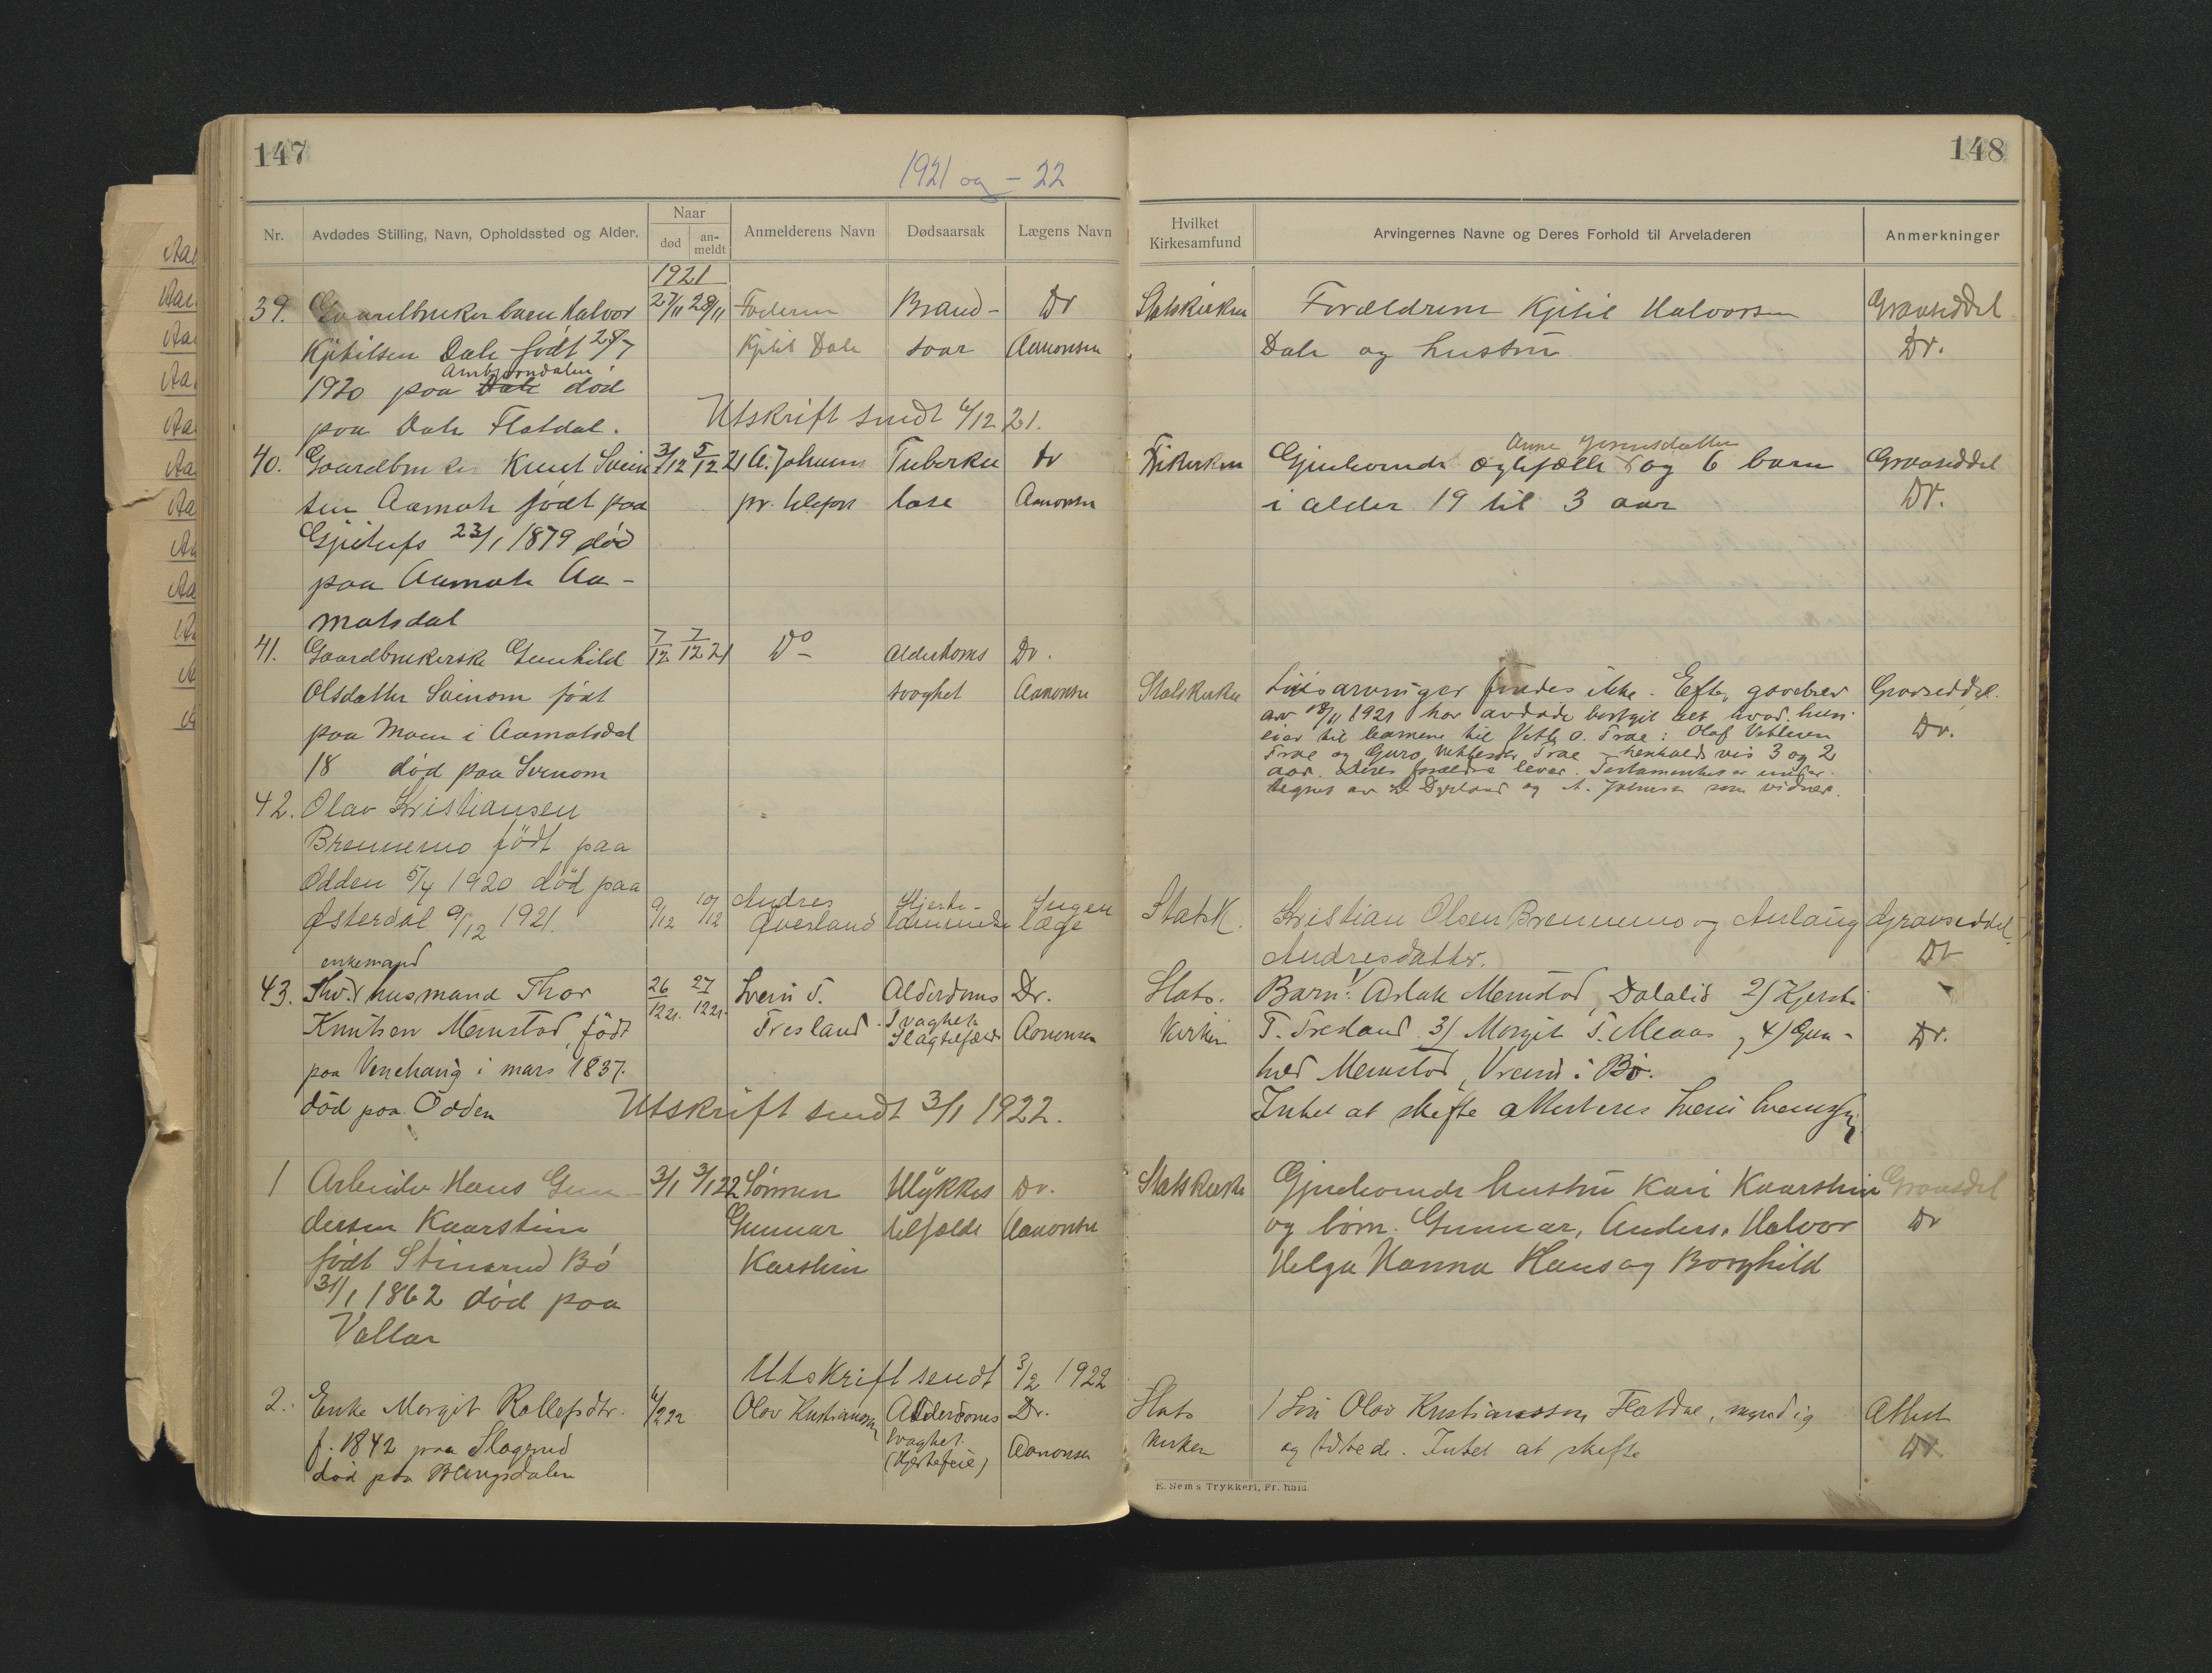 147
1921 og - 22
Nr.
Avdødes Stilling, Navn, Opholdssted og Alder.
Naar
død
an-
meldt
Anmelderens Navn
Dødsaarsak
Lægens Navn
1921
39. Gaardbruker barn Halvor 27/11 28/11 Faderen Brand- Dr
Kjetilsen Dale født 28/7 Kjetil Dale saar Aanonsen
Ambjørndalen
1920 paa Dale død
paa Dale Flatdal. Utskrift sendt 6/12 21.
40. Gaardbruker Knut Svein 3/12 5/12 21 A. Johnsen Tuberku Dr
sen Aamote født paa pr. telefon lose Aanonsen
23/1 1879 død
paa Aamote Aa-
motsdal
41. Gaardbrukerske Gunhild 7/12 7/12 21 Do - Alderdoms Dr.
Olsdatter Svinom født svaghet Aanonsen
paa Moen i Aamotsdal
18 død paa Svinom
42. Olav Kristiansen
Brennemo født paa
Odden 5/4 1920 død paa 9/12 10/12 Andres Hjerte- Ingen
Østerdal 9/12 1921. Øverland lammelse læge
enkemand
43. Fhv. husmand Thor 26/12 21. 27/12 21. Svein T. Alderdoms Dr.
Knutsen Menstad, født Tresland Svaghet Aanonsen
Slagtilfælde
paa Venehaug i mars 1837.
død paa Odden Utskrift sendt 3/1 1922.
1 Arbeider Hans Gun- 3/1 3/1 22 Sønnen Ulykkes Dr.
dersen Kaarstein Gunnar tilfælde Aanonsen
født Stinerud Bø Karstein
31/1 1862 død paa
Vallar
Utskrift sendt 3/2 1922
2. Enke Margit Rollefsdtr. 6/2 22 Olav Kristiansen Alderdoms Dr.
f. 1842 paa Slagerud svaghet. Aanonsen
død paa (Hjertefeil)
148
Hvilket
Kirkesamfund
Arvingernes Navne og Deres Forhold til Arveladeren
Anmerkninger
Statskirken Forældrene Kjetil Halvorsen Gravseddel
Dale og hustru Dr.
Anne Jørensdatter
Frikirken Gjenlevende egtefælle og 6 barn Gravseddel
i alder 19 til 3 aar Dr.
Statskirken Livsarvinger findes ikke. Efter gavebrev Gravseddel.
av 18/11 1921 har avdøde bortgit alt hvad hun Dr.
eier til barnene til Vetle O. Trae: Olaf Vetlesen
Trae og Guro Vetlesdtr Trae henholdsvis 3 og 2
aar. Deres forældre lever. Testamentet er under-
tegnet av D. Dyrland og A. Johnsen som vidner.
StatsK. Kristian Olsen Brennemo og Anlaug Gravseddel.
Andresdatter. Dr
Stats. Barn: 1) Aslak Menstad, Dalalid 2) Kjersti
kirken T. Tresland 3) Margit T. Meaas, 4) Gun- Dr.
hild Menstad, Vreim i Bø.
Intet at skifte attesteres Svein
Statskirke Gjenlevende hustru Kari Kaarstein Gravsedel
og børn. Gunnar, Anders, Halvor Dr
Helga Hanna Hans og Borghild
Stats 1 søn Olav Kristiansson Flatdal, myndig Attest
kirken og tilstede. Intet at skifte Dr.
E. Sems Trykkeri, Fr.hald.